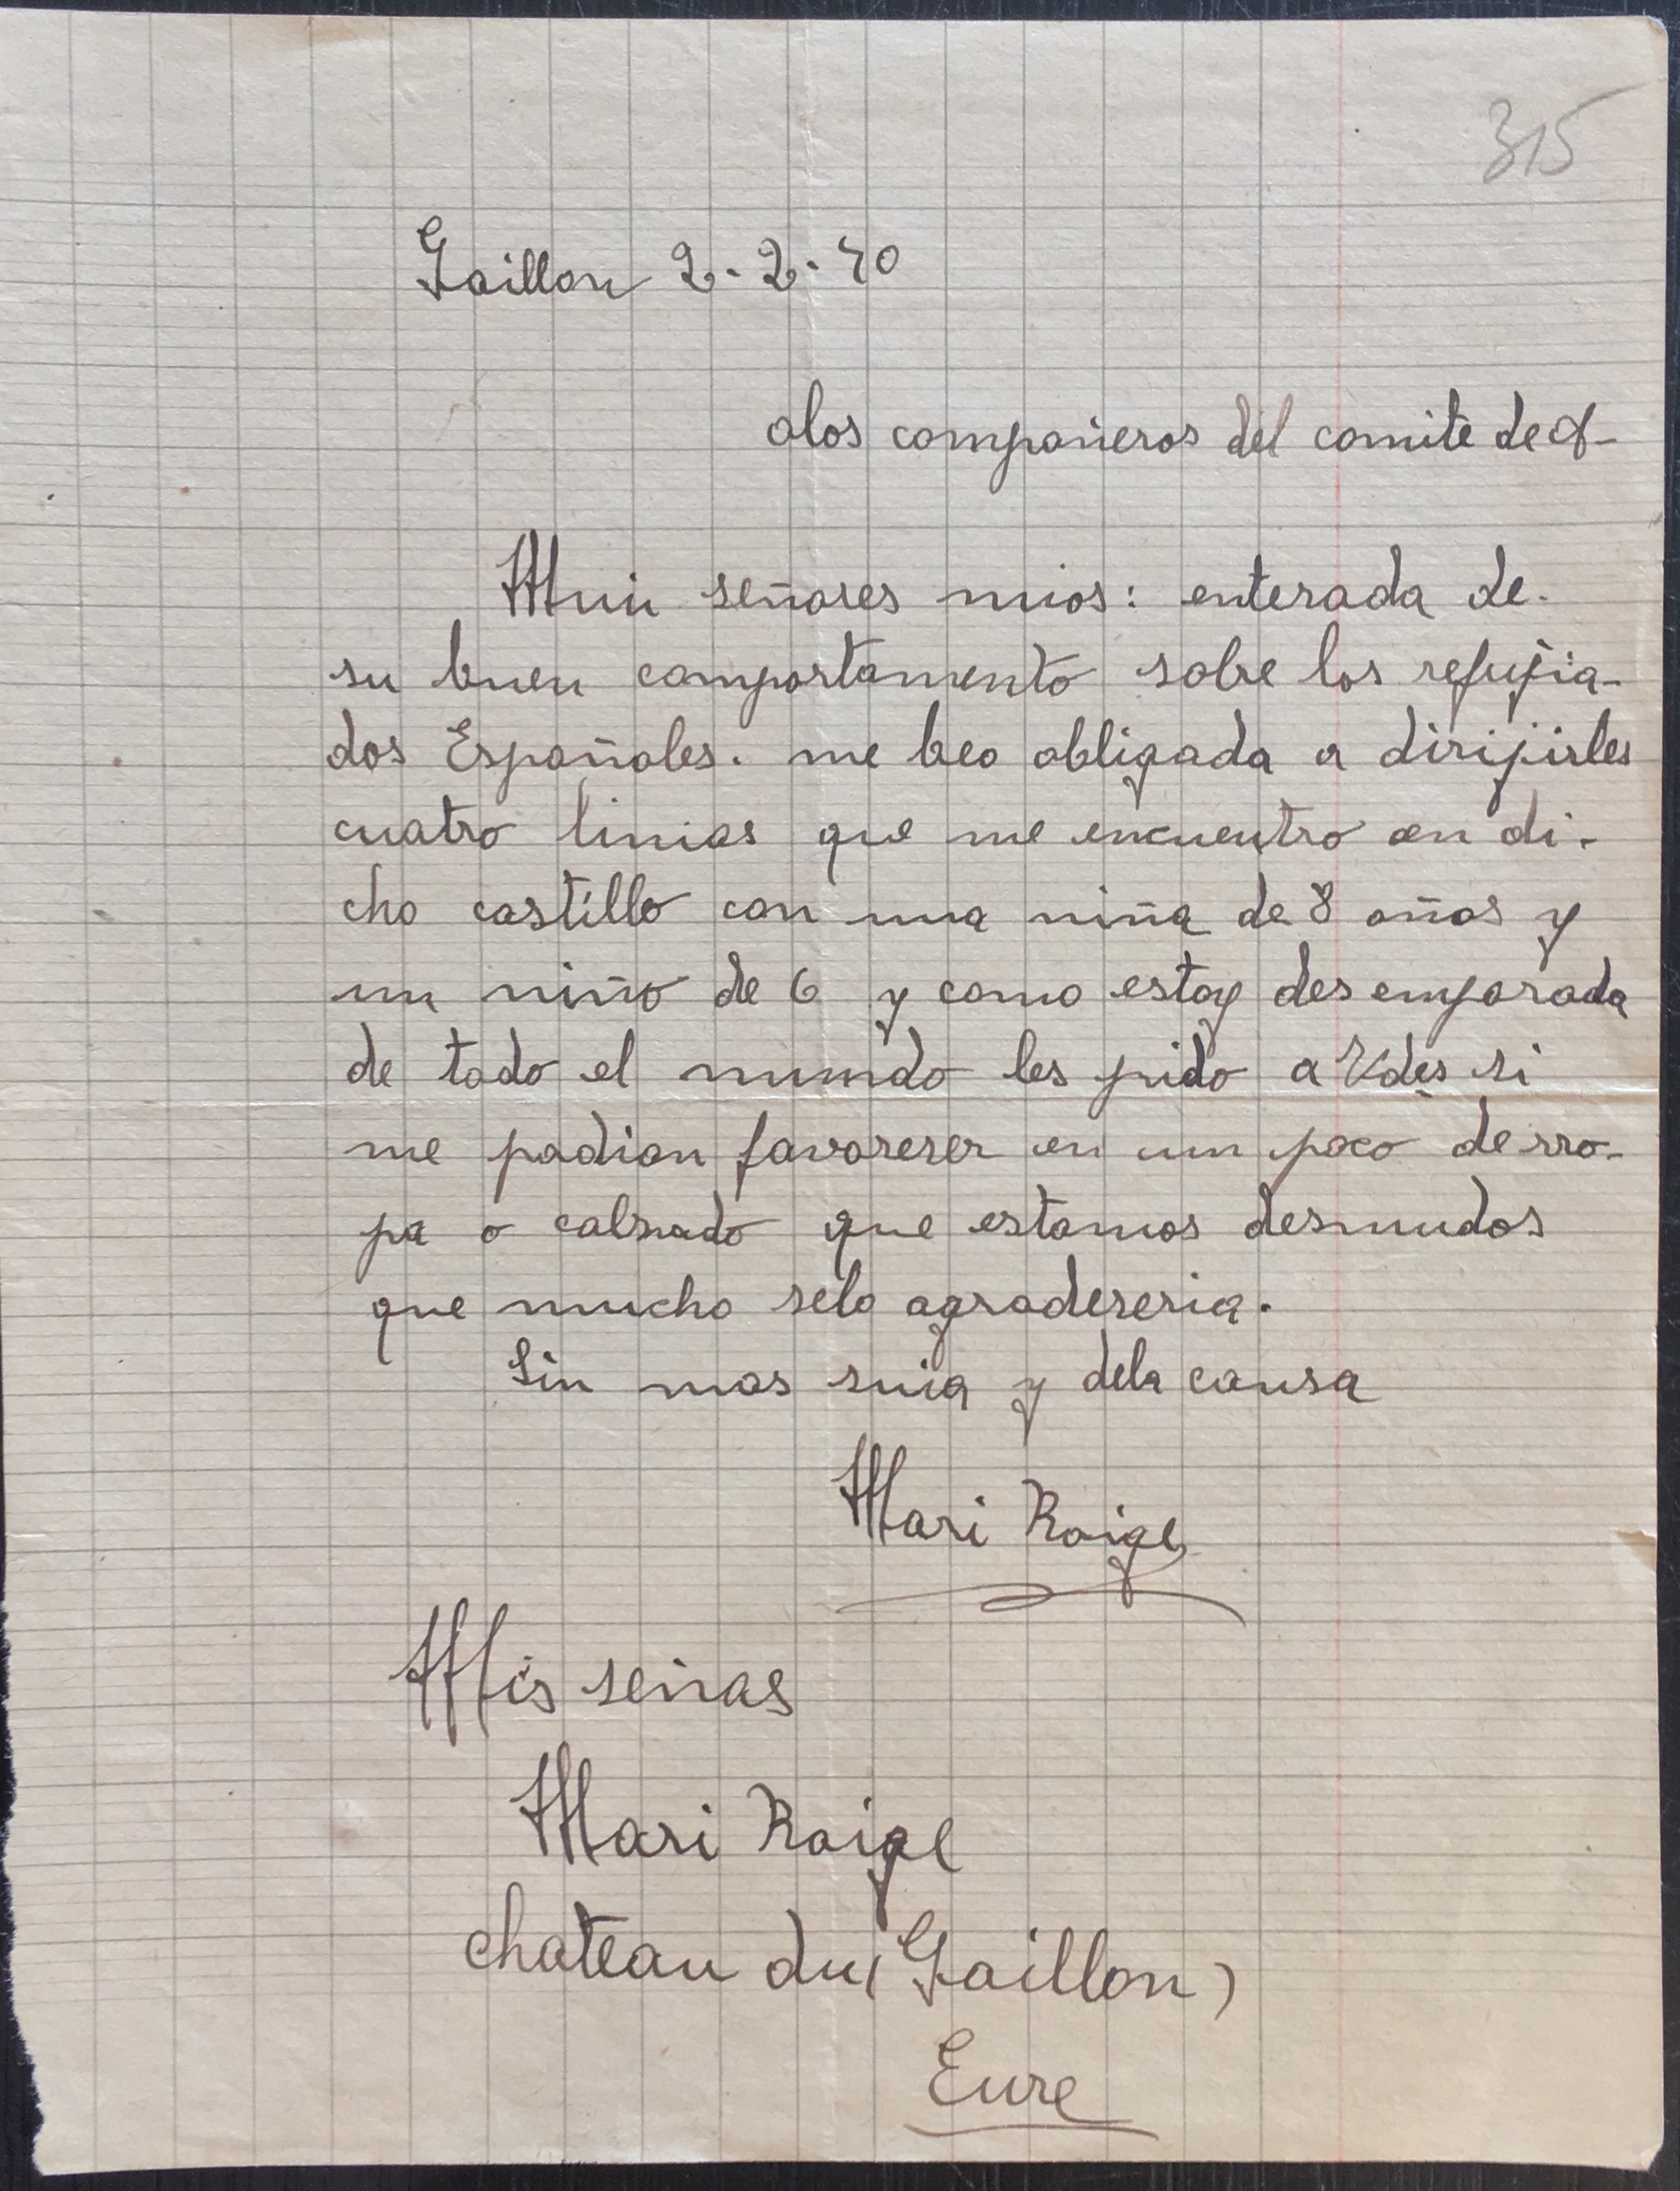 315
Gaillon 2-2-40
alos compañeros del comite de A-
Mui señores mios: enterada de-
su buen comportamento sobre los refujia-
dos Españoles. me beo obligada a dirijirles
cuatro linias que me encuentro en di-
cho castillo con una niña de 8 años y
un niño de 6 y como estoy des emparada
de todo el mundo les pido a Vdes si
me podian favoreser en un poco de rro-
pa o calsado que estamos desnudos
que mucho selo agradeseria.
Sin mas suia y dela causa
Mari Roige
Mis señas
Mari Roige
chateau du (Gaillon)
Eure